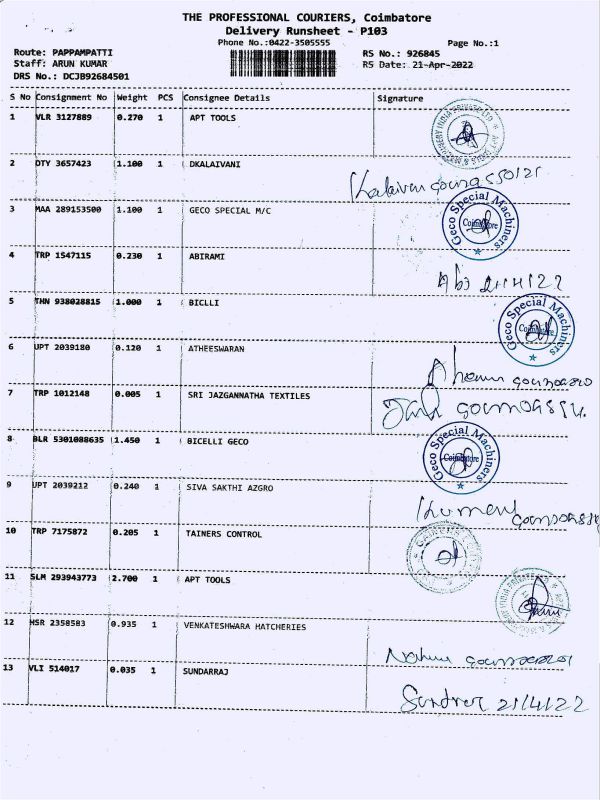 THE PROFESSIONAL COURIERS, Coimbatore
Delivery Runsheet - P103
Phone No.:0422-3505555
Page No.:1
Route: PAPPAMPATTI
RS No.: 926845
Staff: ARUN KUMAR
RS Date: 21-Apr-2022
DRS No.: DCJB92684501
S No Consignment No Weight PCS Consignee Details Signature
1 VLR 3127889 0.270 1 APT TOOLS
2 DTY 3657423 1.100 1 DKALAIVANI
3 MAA 289153500 1.100 1 GECO SPECIAL M/C
Geco Special Machiners
Coimbatore
4 TRP 1547115 0.230 1 ABIRAMI
21/4/22
5 THN 938028815 1.000 1 BICLLI
Geco Special Machiners
Coimbatore
6 UPT 2039180 0.120 1 ATHEESWARAN
7 TRP 1012148 0.005 1 SRI JAZGANNATHA TEXTILES
8 BLR 5301088635 1.450 1 BICELLI GECO
Geco Special Machiners
Coimbatore
9 UPT 2039212 0.240 1 SIVA SAKTHI AZGRO
10 TRP 7175872 0.205 1 TAINERS CONTROL
11 SLM 293943773 2.700 1 APT TOOLS
12 HSR 2358583 0.935 1 VENKATESHWARA HATCHERIES
13 VLI 514017 0.035 1 SUNDARRAJ
21/4/22